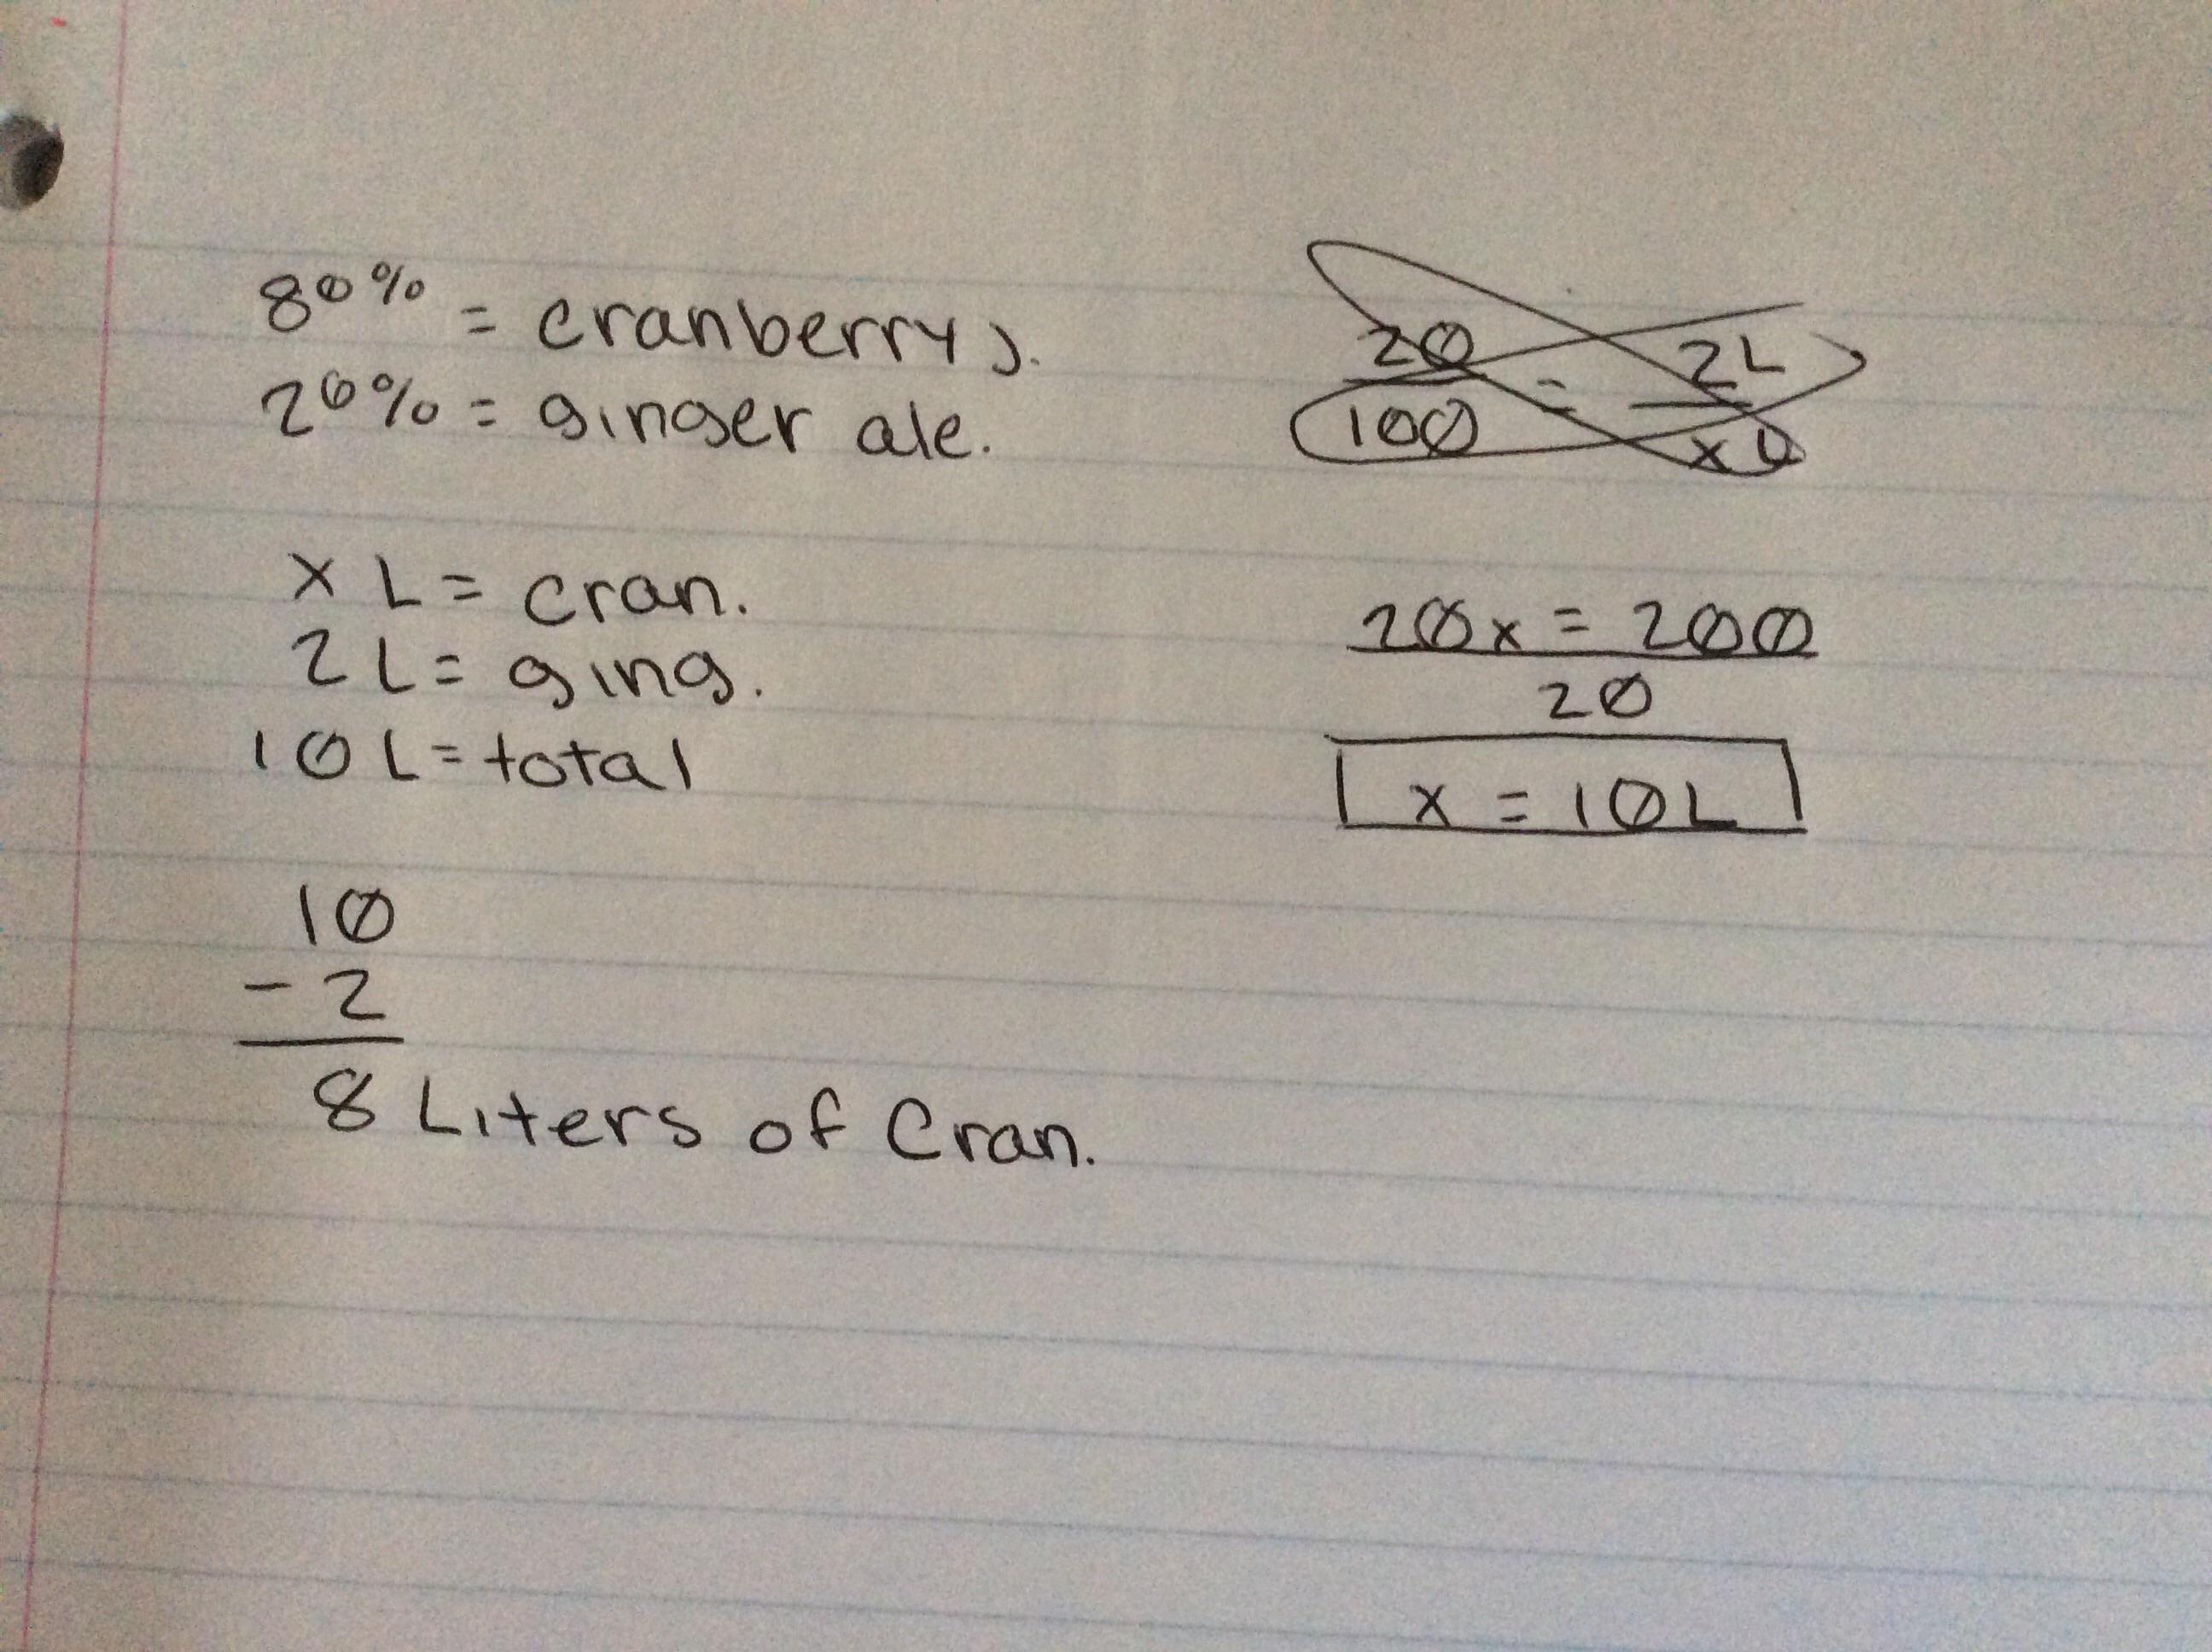 80% = cranberry J.
20% = ginger ale.
x L = cran.
2 L = ging.
10 L = total
10
- 2
8 Liters of Cran.
20 = 2L
100 xL
20x = 200
20
x = 10L